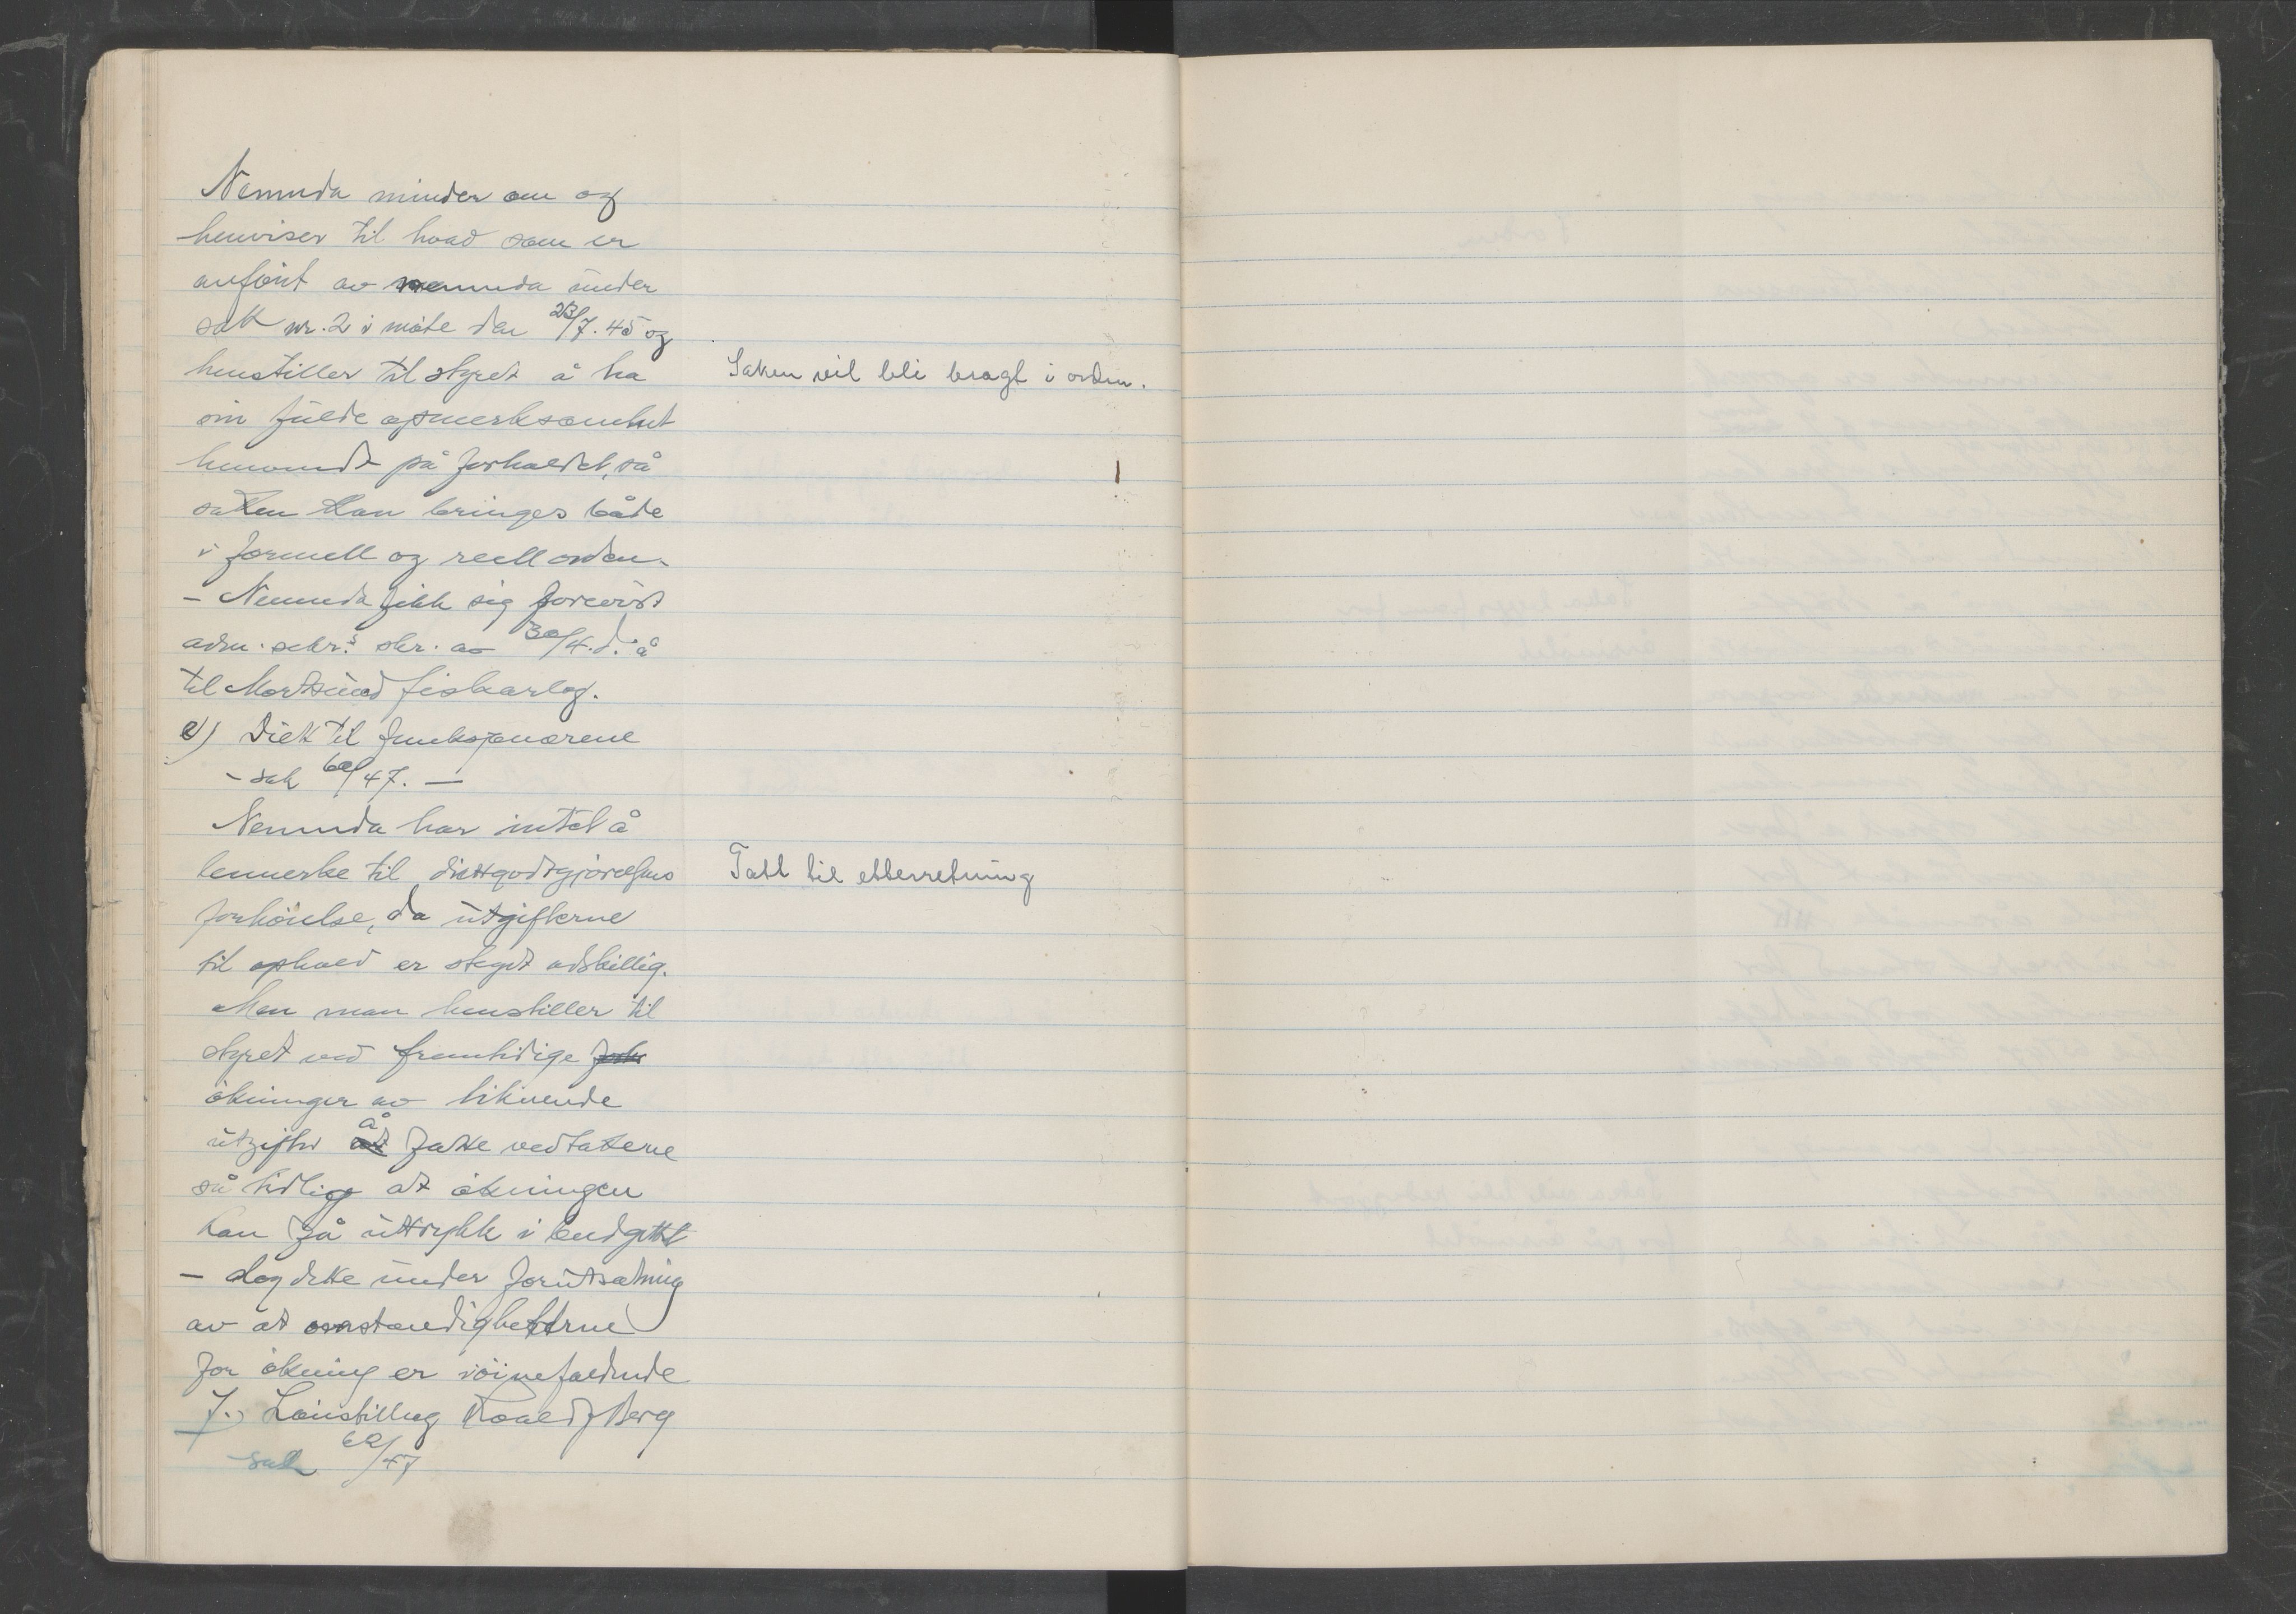 Nemnda minder om og
henviser til hvad som er
anført av nemnda under
sak nr. 2 i møte den 23/7. 45 og
henstiller til styret å ha
sin fulde opmerksomhet
henvendt på forholdet, så
saken kan bringes både
i formell og reell orden.
- Nemnda fikk sig forevist
adm. sekr.s skr. av 30/4. d. å
til Mortsund fiskarlag.
e) Diett til funksjonærene
- sak 60/47. —
Nemnda har intet å
bemerke til diettgodtgjørelsens
forhøielse, da utgifterne
til ophold er steget adskillig.
Men man henstiller til
styret ved fremtidige
økninger av liknende
utgifter å fatte vedtakene
så tidlig at økningen
kan få uttrykk i budgettet
- dog dette under forutsætning
av at omstændighetterne
for økning er iøinefaldende
f.) Lønstilling Roald J Berg
- sak 62/47
Saken vil bli bragt i orden.
Tatt til etterretning